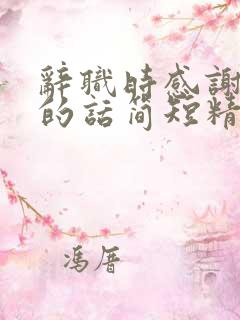 辭職時感謝
的話簡短精
馮厝